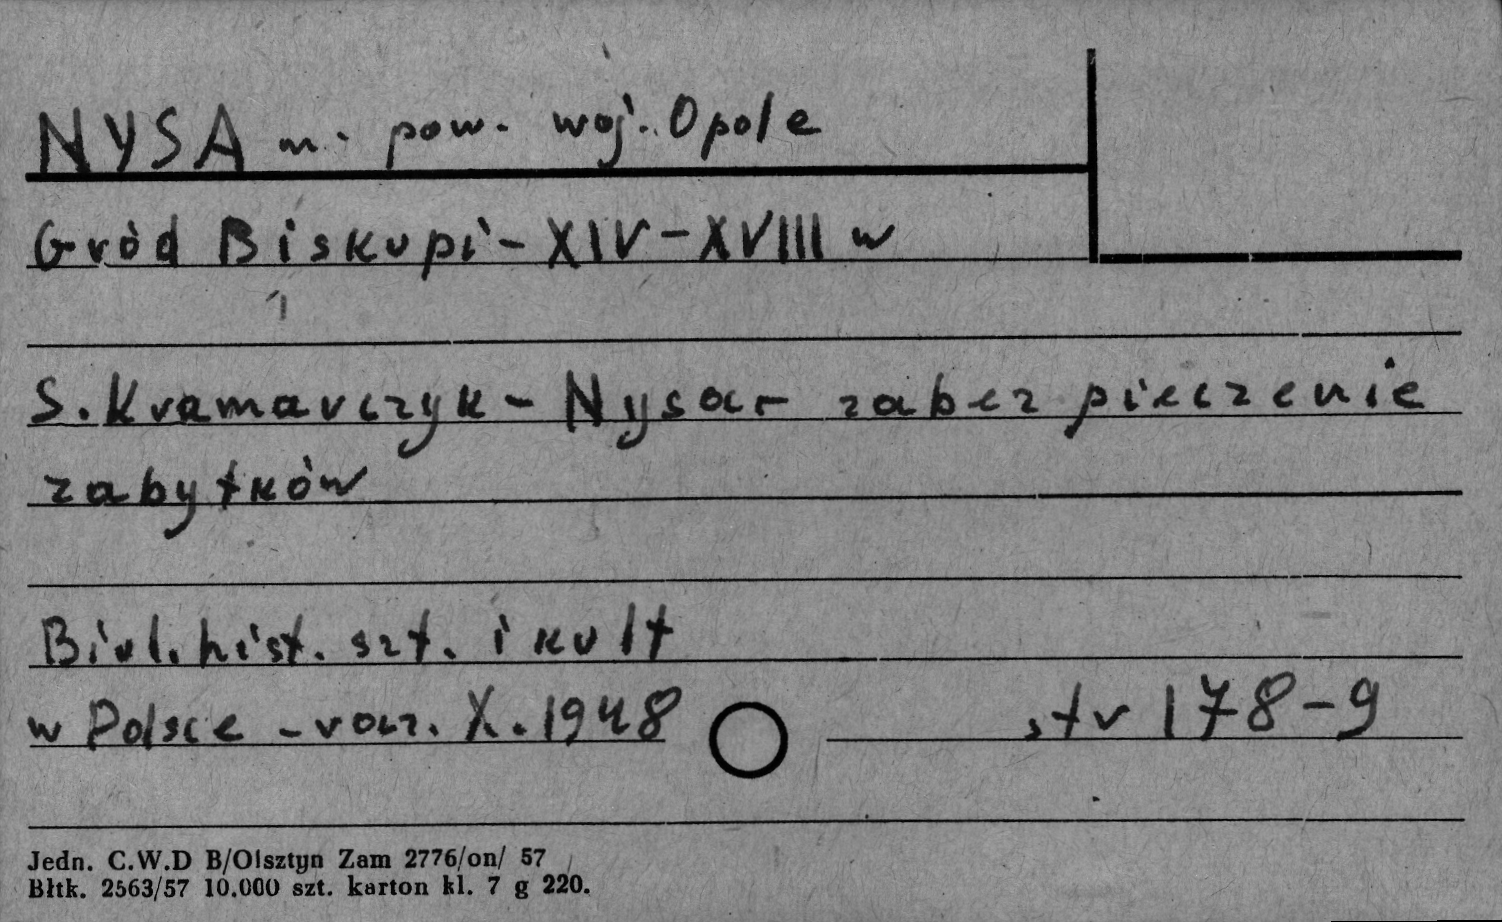 NYSA m. pow. woj. Opole
Gród Biskupi - XIV - XVIII w
S. Kramarczyk - Nysa - zabezpieczenie
zabytków
Biul. hist. szt. i kult
w Polsce - rocz. X. 1948 str 178-9
Jedn. C.W.D B/Olsztyn Zam 2776/on/ 57
Błtk. 2563/57 10.000 szt. karton kl. 7 g 220.